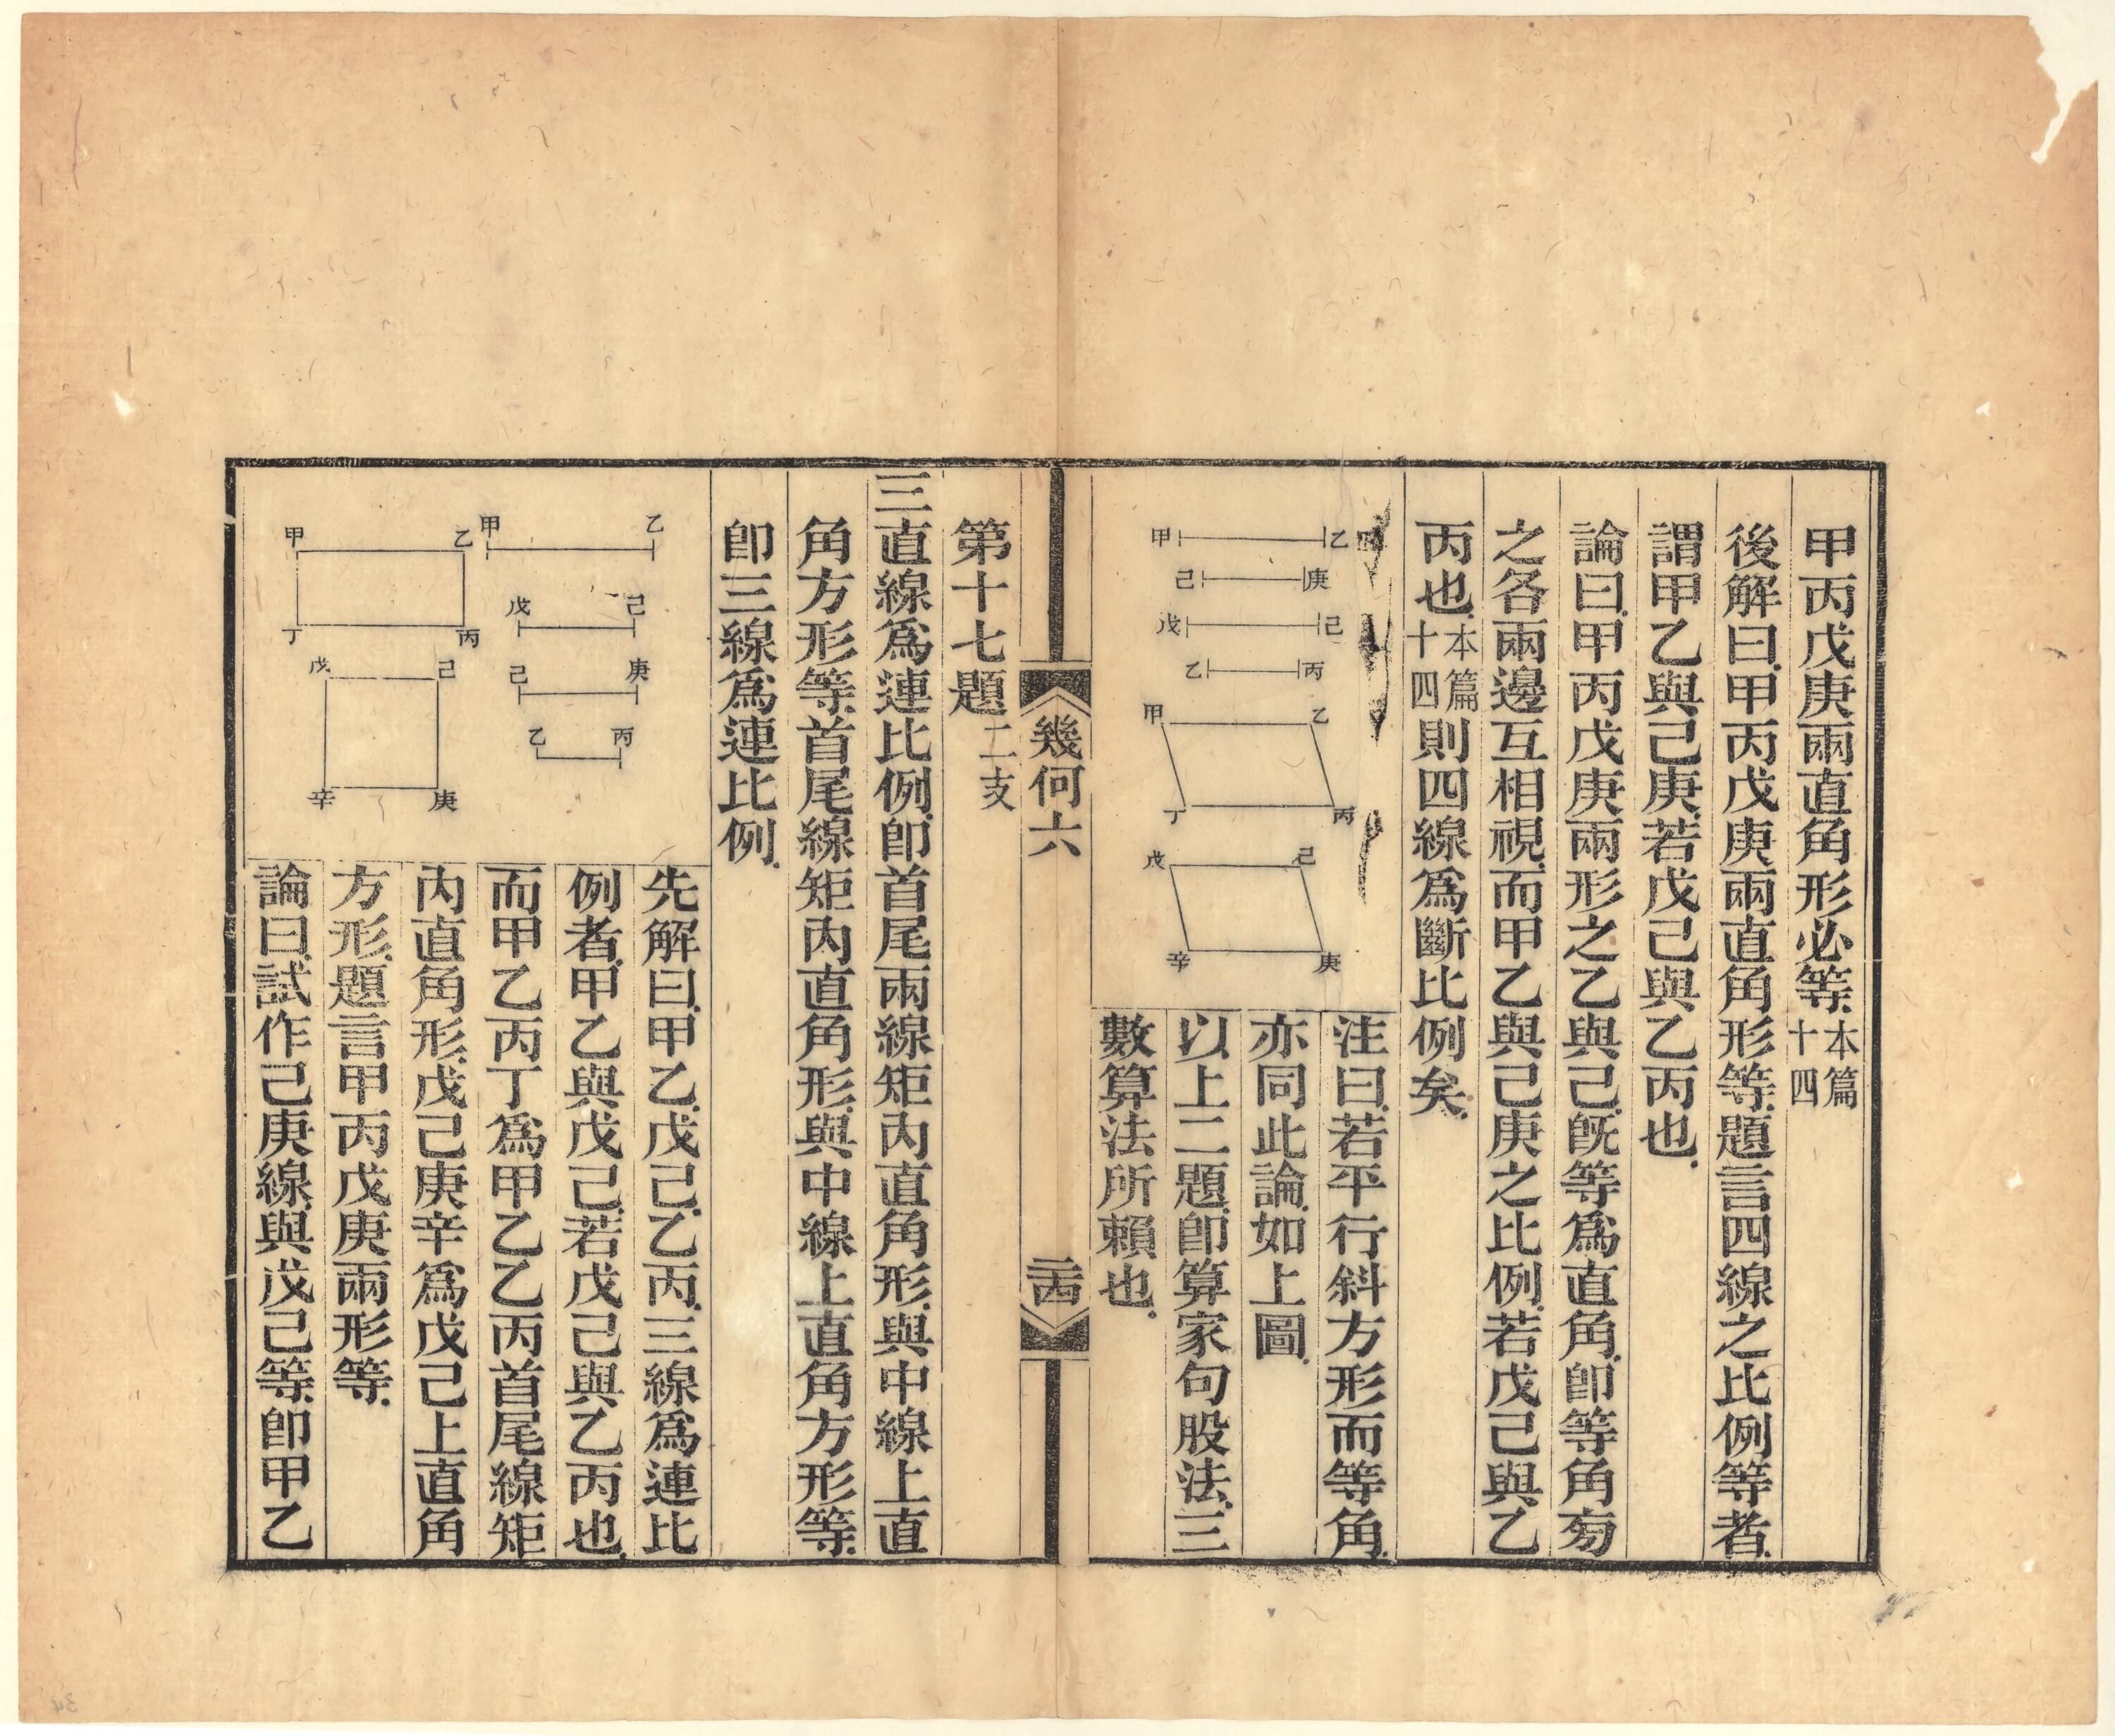 甲丙戊庚兩直角形必等本篇十四
後解曰甲丙戊庚兩直角形等題言四線之比例等者
謂甲乙與己庚若戊己與乙丙也
論曰甲丙戊庚兩形之乙與己旣等爲直角卽等角旁
之各兩邊互相視而甲乙與己庚之比例若戊己與乙
丙也本篇十四則四線爲斷比例矣
注曰若平行斜方形而等角
亦同此論如上圖
以上二題卽算家句股法三
數算法所賴也
甲 乙
己 庚
戊 己
乙 丙
甲 乙
丁 丙
戊 己
辛 庚
幾何六
第十七題二支
三直線爲連比例卽首尾兩線矩內直角形與中線上直
角方形等首尾線矩內直角形與中線上直角方形等
卽三線爲連比例
先解曰甲乙戊己乙丙三線爲連比
例者甲乙與戊己若戊己與乙丙也
而甲乙丙丁爲甲乙乙丙首尾線矩
內直角形戊己庚辛爲戊己上直角
方形題言甲丙戊庚兩形等
論曰試作己庚線與戊己等卽甲乙
甲 乙
戊 己
己 庚
乙 丙
甲 乙
丁 丙
戊 己
辛 庚
34